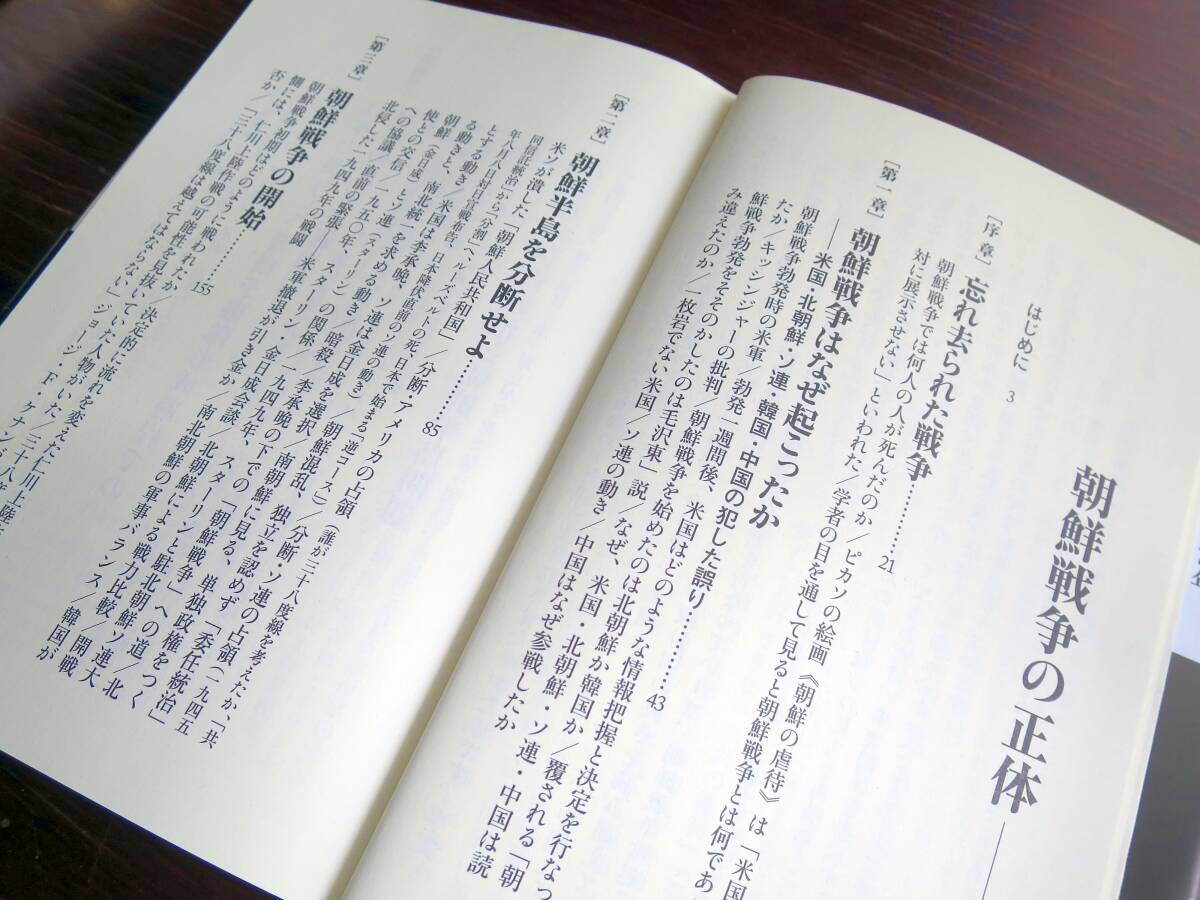 朝鮮戦争の正体
はじめに 3
［序章］ 忘れ去られた戦争…………21
朝鮮戦争では何人の人が死んだのか／ピカソの絵画《朝鮮の虐待》は「米国
対に展示させない」といわれた／学者の目を通して見ると朝鮮戦争とは何であ
［第一章］ 朝鮮戦争はなぜ起こったか
――米国・北朝鮮・ソ連・韓国・中国の犯した誤り…………43
朝鮮戦争勃発時の米軍／勃発一週間後、米国はどのような情報把握と決定を行なっ
たか／キッシンジャーの批判／朝鮮戦争を始めたのは北朝鮮か韓国か／覆される「朝
鮮戦争勃発をそそのかしたのは毛沢東」説／なぜ、米国・北朝鮮・ソ連・中国は読
み違えたのか／一枚岩でない米国／ソ連の動き／中国はなぜ参戦したか
［第二章］ 朝鮮半島を分断せよ…………85
米ソが潰した「朝鮮人民共和国」／分断・アメリカの占領（誰が三十八度線を考えたか、「共
同信託統治」から「分割」へ、ルーズベルトの死、日本で始まる「逆コース」）／分断・ソ連の占領（一九四五
年八月八日対日宣戦布告、日本降伏直前のソ連の動き）／朝鮮混乱、独立を認めず「委任統治」
とする動き／米国は李承晩、ソ連は金日成を選択／南朝鮮に見る、単独政権をつく
る動きと、南北統一を求める動き／暗殺／李承晩の下での「朝鮮戦争」への道／北
朝鮮（金日成）とソ連（スターリン）の関係／一九四九年、スターリンと駐北朝鮮ソ連大
使との交信／一九五〇年、スターリン・金日成会談／北朝鮮による戦力比較／開戦
への協議／直前の緊張――米軍撤退が引き金か／南北朝鮮の軍事バランス／韓国が
北侵した一九四九年の戦闘
［第三章］ 朝鮮戦争の開始…………155
朝鮮戦争初期はどのように戦われたか／決定的に流れを変えた仁川上陸
側には、仁川上陸作戦の可能性を見抜いていた人物がいた／三十八
否か／「三十八度線は越えてはならない」ジョージ・F・ケナン